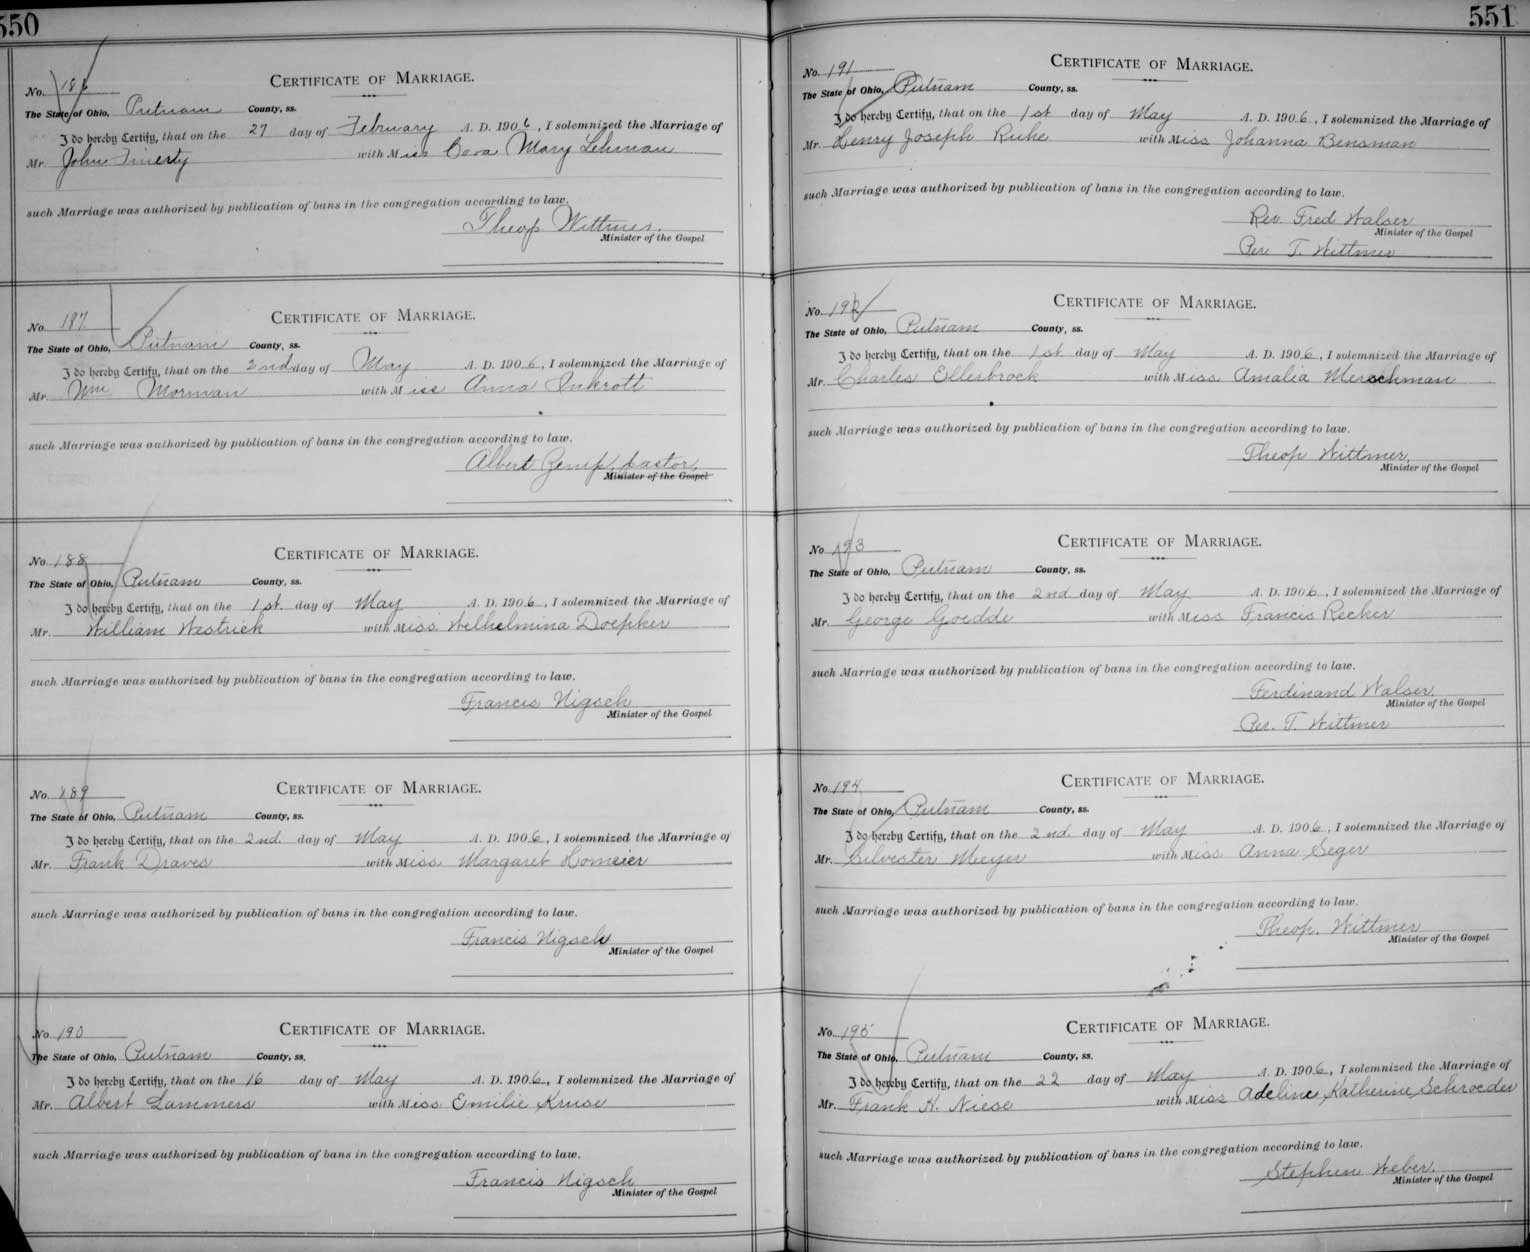 550
No. 186
CERTIFICATE OF MARRIAGE.
The State of Ohio, Putnam County, ss.
I do hereby Certify, that on the 27 day of February A. D. 1906, I solemnized the Marriage of
Mr. John Finerty with Miss Cora Mary Lehman
such Marriage was authorized by publication of bans in the congregation according to law.
Theop Wittmer.
Minister of the Gospel
No. 187
CERTIFICATE OF MARRIAGE.
The State of Ohio, Putnam County, ss.
I do hereby Certify, that on the 2nd day of May A. D. 1906, I solemnized the Marriage of
Mr. Wm Morman with Miss Anna Inkrott
such Marriage was authorized by publication of bans in the congregation according to law.
Albert Zempf, pastor,
Minister of the Gospel
No. 188
CERTIFICATE OF MARRIAGE.
The State of Ohio, Putnam County, ss.
I do hereby Certify, that on the 1st. day of May A. D. 1906, I solemnized the Marriage of
Mr. William Westrick with Miss Wilhelmina Doepker
such Marriage was authorized by publication of bans in the congregation according to law.
Francis Nigsch
Minister of the Gospel
No. 189
CERTIFICATE OF MARRIAGE.
The State of Ohio, Putnam County, ss.
I do hereby Certify, that on the 2nd. day of May A. D. 1906, I solemnized the Marriage of
Mr. Frank Draves with Miss Margaret Homeier
such Marriage was authorized by publication of bans in the congregation according to law.
Francis Nigsch
Minister of the Gospel
No. 190
CERTIFICATE OF MARRIAGE.
The State of Ohio, Putnam County, ss.
I do hereby Certify, that on the 16 day of May A. D. 1906, I solemnized the Marriage of
Mr. Albert Lammers with Miss Emilie Kruse
such Marriage was authorized by publication of bans in the congregation according to law.
Francis Nigsch
Minister of the Gospel
551
No. 191
CERTIFICATE OF MARRIAGE.
The State of Ohio, Putnam County, ss.
I do hereby Certify, that on the 1st day of May A. D. 1906, I solemnized the Marriage of
Mr. Henry Joseph Ruhe with Miss Johanna Bensman
such Marriage was authorized by publication of bans in the congregation according to law.
Rev. Fred Walser
Minister of the Gospel
Per T. Wittmer
No. 192
CERTIFICATE OF MARRIAGE.
The State of Ohio, Putnam County, ss.
I do hereby Certify, that on the 1st day of May A. D. 1906, I solemnized the Marriage of
Mr. Charles Ellerbrock with Miss Amalia Merschman
such Marriage was authorized by publication of bans in the congregation according to law.
Theop Wittmer,
Minister of the Gospel
No. 193
CERTIFICATE OF MARRIAGE.
The State of Ohio, Putnam County, ss.
I do hereby Certify, that on the 2nd day of May A. D. 1906, I solemnized the Marriage of
Mr. George Goedde with Miss Francis Recker
such Marriage was authorized by publication of bans in the congregation according to law.
Ferdinand Walser.
Minister of the Gospel
Per. T. Wittmer
No. 194
CERTIFICATE OF MARRIAGE.
The State of Ohio, Putnam County, ss.
I do hereby Certify, that on the 2nd. day of May A. D. 1906, I solemnized the Marriage of
Mr. Silvester Meyer with Miss Anna Seger
such Marriage was authorized by publication of bans in the congregation according to law.
Theop. Wittmer
Minister of the Gospel
No. 195
CERTIFICATE OF MARRIAGE.
The State of Ohio, Putnam County, ss.
I do hereby Certify, that on the 22 day of May A. D. 1906, I solemnized the Marriage of
Mr. Frank H. Niese with Miss Adeline Katherine Schroeder
such Marriage was authorized by publication of bans in the congregation according to law.
Stephen Weber.
Minister of the Gospel